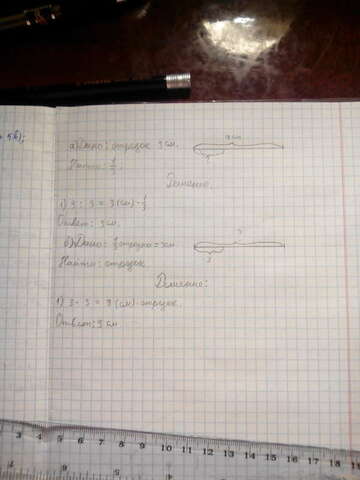 а) Дано: отрезок 9 см.
9 см
?
Найти: 1/3.
Решение.
1) 9 : 3 = 3 (см) - 1/3
Ответ: 3 см.
б) Дано: 1/3 отрезка = 3см
?
3
Найти: отрезок
Решение:
1) 3 · 3 = 9 (см) - отрезок.
Ответ: 9 см
3 4 5 6 7 8 9 10 11 12 13 14 15 16 17 18